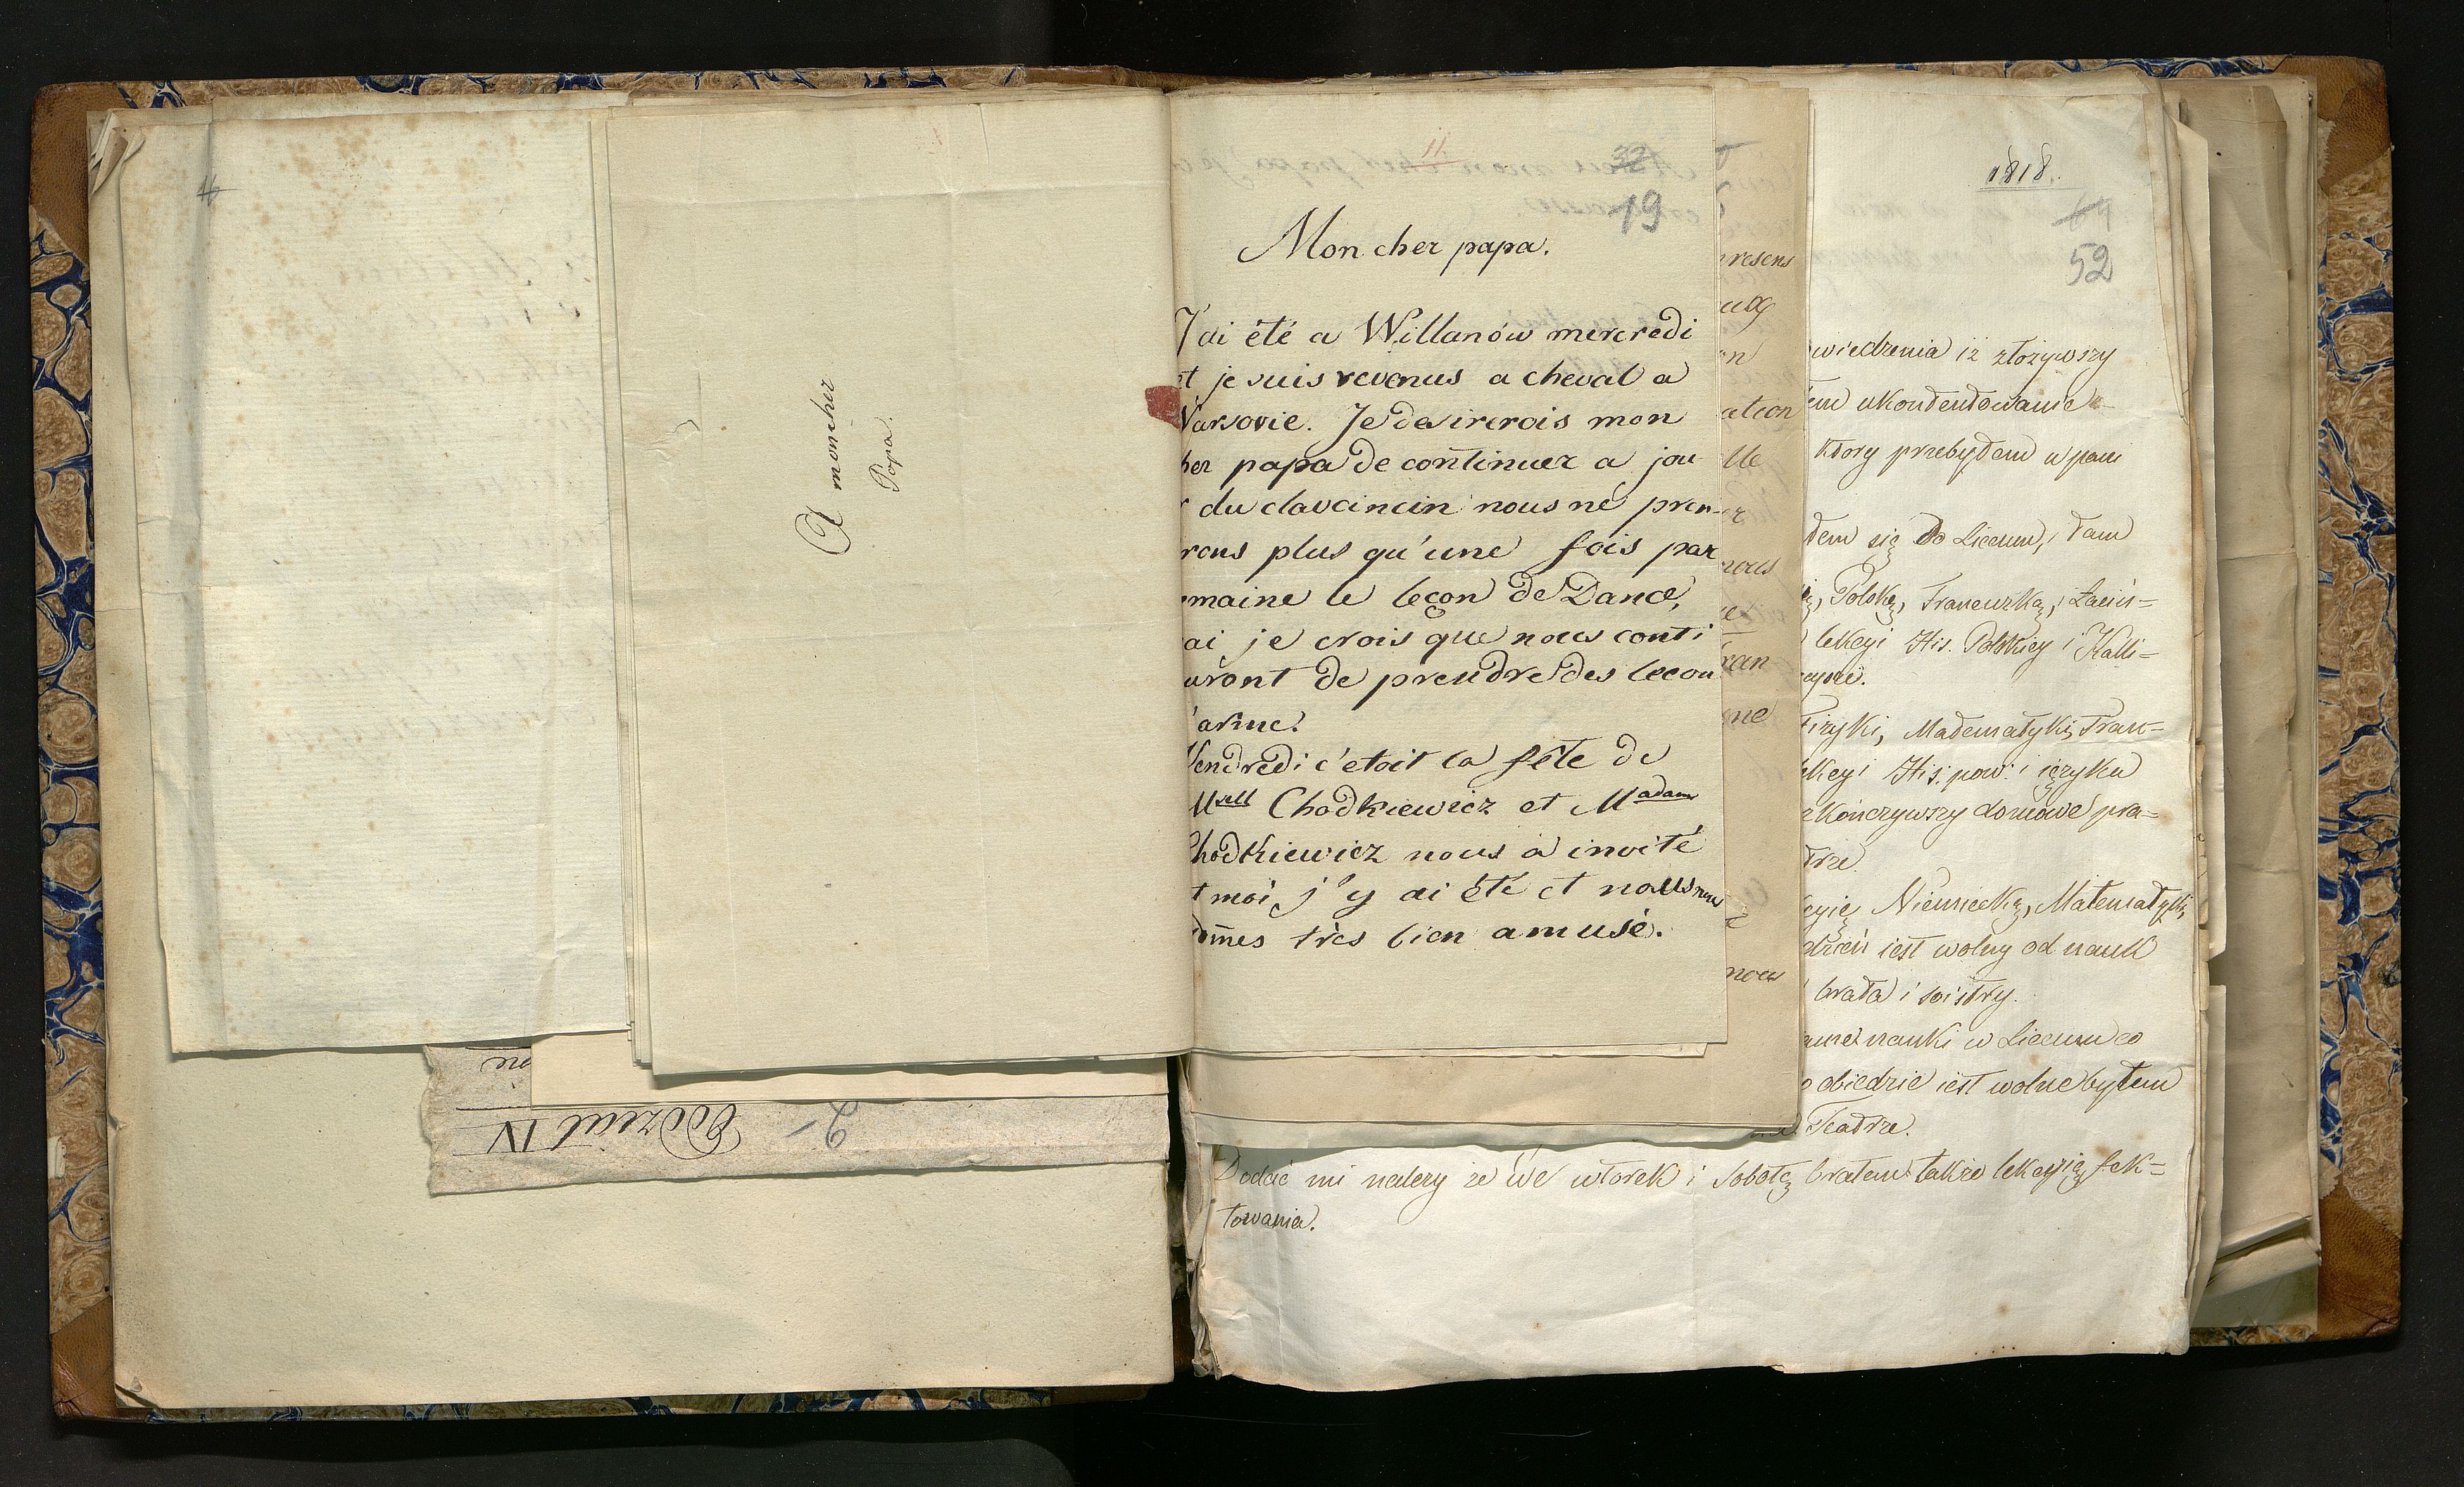 A mon cher
Papa.
Podział IV
2
11.
32
19
Mon cher papa.
J'ai été a Willanów mercredi
et je suis revenus a cheval a
Varsovie. Je desirerois mon
her papa de continuer a jou
r du clavincin nous ne pren-
rons plus qu'une fois par
maine le leçon de Dance,
ai je crois que nous conti
uront de prendre des lecon
'arme.
Vendredi c'etoit la fête de
Msell Chodkiewicz et Madam
Chodkiewicz nous a invité
t moi j'y ai été et nous nous
omes très bien amusé.
resens
aux
on
ation
lle
nous
ran
one
nous
1818.
64
52
wiedzenia iż złożywszy
em ukontentowanie
ktory przebyłem w pani
łem się do Liceum, tam
Polską, Francuzką, i Łaciń-
lekcyi His. Polskiey i Kalli-
Fizyki, Matematyki, Fran-
kcyi His. pow. i ięzyku
kończywszy domowe pra-
trze.
cyię Niemiecką, Matematyki,
dzień iest wolny od nauk
brata i siostry.
ame nauki w Liceum co
o obiedzie iest wolne byłem
Teatrze.
Dodać mi należy że we wtorek i Sobotę brałem także lekcyią fek-
towania.